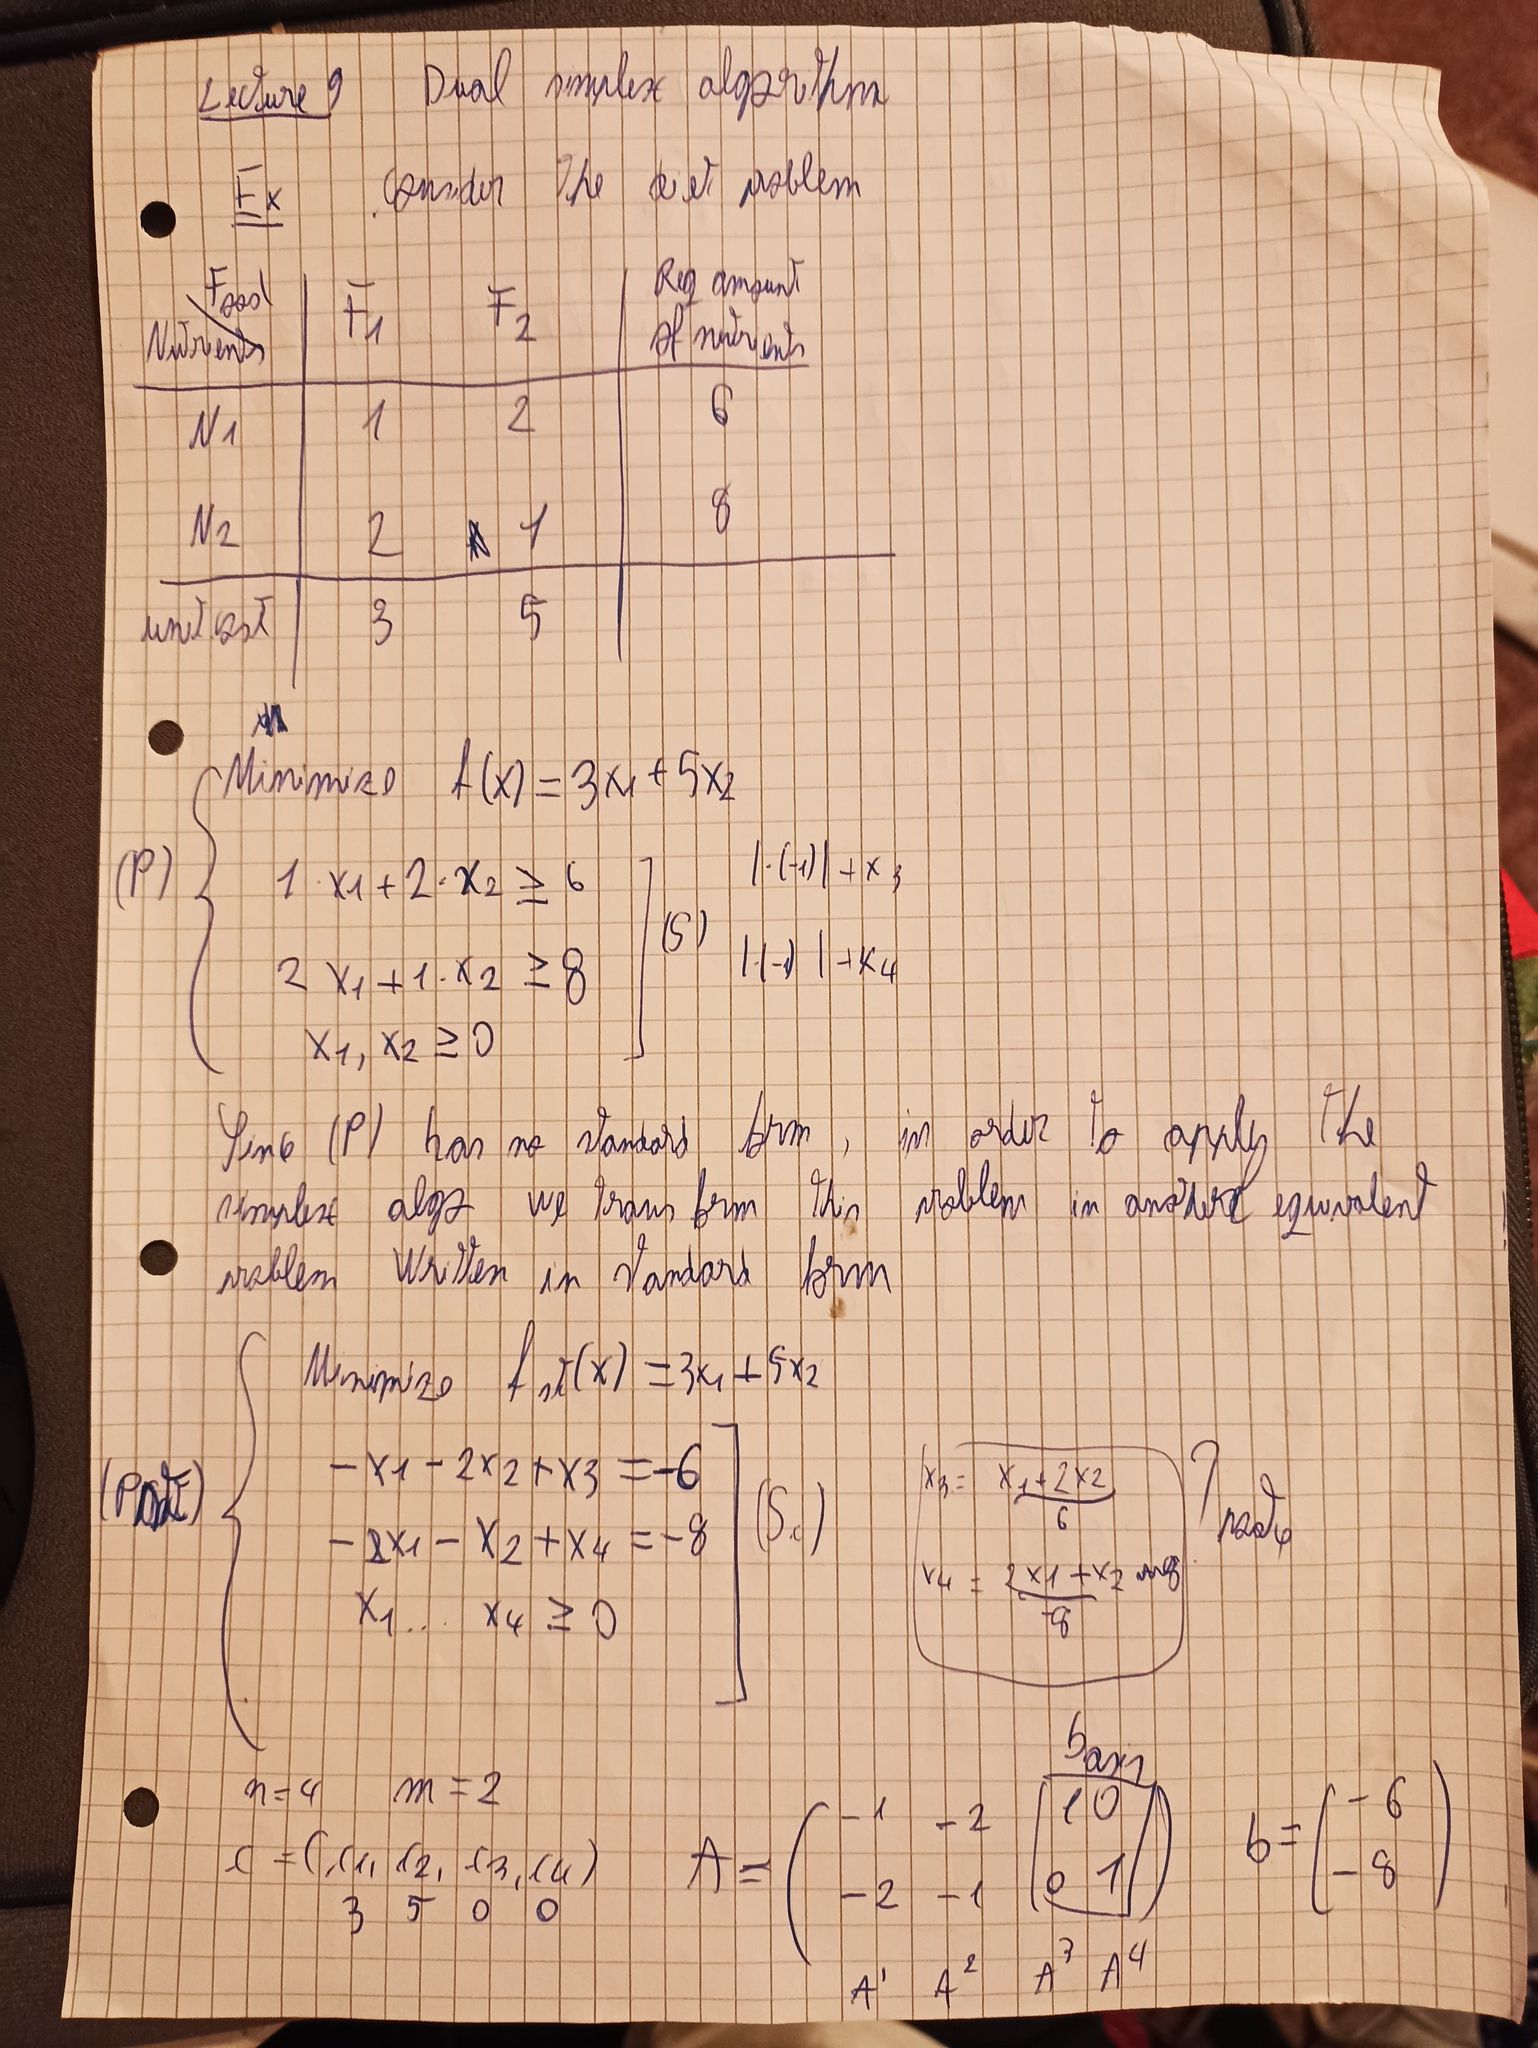 Lecture 9 Dual simplex algorithm
Ex consider the diet problem
Food F1 F2 Req amount
Nutrients of nutrients
N1 1 2 6
N2 2 1 8
unit cost 3 5
Minimize f(x) = 3x1 + 5x2
(P) 1·x1 + 2·x2 ≥ 6 |·(-1)| + x3
(S)
2 x1 + 1·x2 ≥ 8 |·(-1)| + x4
x1, x2 ≥ 0
Since (P) has no standard form, in order to apply the
simplex algo we transform this problem in another equivalent
problem written in standard form
Minimize fst(x) = 3x1 + 5x2
-x1 - 2x2 + x3 = -6 x3 = x1 + 2x2 / 6 ?
(Pst) -2x1 - x2 + x4 = -8 (Sc)
x4 = 2x1 + x2 / -8
x1... x4 ≥ 0
basis
n=4 m=2
c = (c1, c2, c3, c4) A = ( -1 -2 1 0 ) b = ( -6 )
3 5 0 0 ( -2 -1 0 1 ) ( -8 )
A1 A2 A3 A4